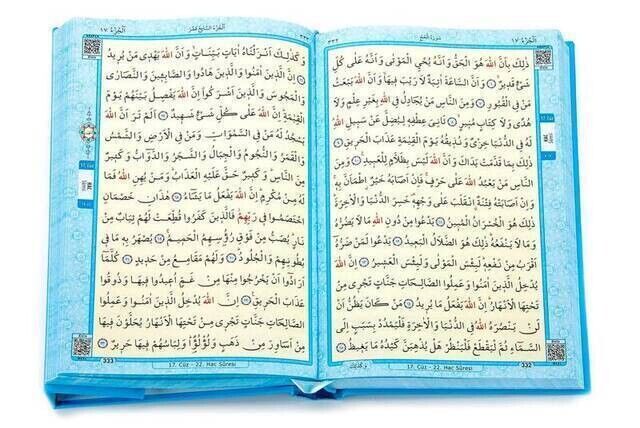 الْجُزْءُ ١٧
سُورَةُ الْحَجِّ
٣٣٢
ذٰلِكَ بِاَنَّ اللّٰهَ هُوَ الْحَقُّ وَاَنَّهُ يُحْيِ الْمَوْتٰى وَاَنَّهُ عَلٰى كُلِّ
شَيْءٍ قَد۪يرٌۙ ﴿٦﴾ وَاَنَّ السَّاعَةَ اٰتِيَةٌ لَا رَيْبَ ف۪يهَا وَاَنَّ اللّٰهَ يَبْعَثُ
مَنْ فِي الْقُبُورِ ﴿٧﴾ وَمِنَ النَّاسِ مَنْ يُجَادِلُ فِي اللّٰهِ بِغَيْرِ عِلْمٍ وَلَا
هُدًى وَلَا كِتَابٍ مُن۪يرٍۙ ﴿٨﴾ ثَانِيَ عِطْفِه۪ لِيُضِلَّ عَنْ سَب۪يلِ اللّٰهِ
لَهُ فِي الدُّنْيَا خِزْيٌ وَنُذ۪يقُهُ يَوْمَ الْقِيٰمَةِ عَذَابَ الْحَر۪يقِ ﴿٩﴾ ذٰلِكَ
بِمَا قَدَّمَتْ يَدَاكَ وَاَنَّ اللّٰهَ لَيْسَ بِظَلَّامٍ لِلْعَب۪يدِ ﴿١٠﴾ وَمِنَ
النَّاسِ مَنْ يَعْبُدُ اللّٰهَ عَلٰى حَرْفٍ فَاِنْ اَصَابَهُ خَيْرٌ اطْمَاَنَّ بِه۪
وَاِنْ اَصَابَتْهُ فِتْنَةٌ انْقَلَبَ عَلٰى وَجْهِه۪ خَسِرَ الدُّنْيَا وَالْاٰخِرَةَ
ذٰلِكَ هُوَ الْخُسْرَانُ الْمُب۪ينُ ﴿١١﴾ يَدْعُوا مِنْ دُونِ اللّٰهِ مَا لَا يَضُرُّهُ
وَمَا لَا يَنْفَعُهُ ذٰلِكَ هُوَ الضَّلَالُ الْبَع۪يدُ ﴿١٢﴾ يَدْعُوا لَمَنْ ضَرُّهُ
اَقْرَبُ مِنْ نَفْعِه۪ لَبِئْسَ الْمَوْلٰى وَلَبِئْسَ الْعَش۪يرُ ﴿١٣﴾ اِنَّ اللّٰهَ
يُدْخِلُ الَّذ۪ينَ اٰمَنُوا وَعَمِلُوا الصَّالِحَاتِ جَنَّاتٍ تَجْر۪ي مِنْ
تَحْتِهَا الْاَنْهَارُ اِنَّ اللّٰهَ يَفْعَلُ مَا يُر۪يدُ ﴿١٤﴾ مَنْ كَانَ يَظُنُّ اَنْ
لَنْ يَنْصُرَهُ اللّٰهُ فِي الدُّنْيَا وَالْاٰخِرَةِ فَلْيَمْدُدْ بِسَبَبٍ اِلَى
السَّمَاءِ ثُمَّ لْيَقْطَعْ فَلْيَنْظُرْ هَلْ يُذْهِبَنَّ كَيْدُهُ مَا يَغ۪يظُ ﴿١٥﴾
وَكَذٰلِكَ
17. Cüz - 22. Hac Sûresi
332
اَلْجُزْءُ السَّابِعَ عَشَرَ
اَلْجُزْءُ ١٧
وَكَذٰلِكَ اَنْزَلْنَاهُ اٰيَاتٍ بَيِّنَاتٍ وَاَنَّ اللّٰهَ يَهْد۪ي مَنْ يُر۪يدُ
﴿١٦﴾ اِنَّ الَّذ۪ينَ اٰمَنُوا وَالَّذ۪ينَ هَادُوا وَالصَّابِـ۪ٔينَ وَالنَّصَارٰى
وَالْمَجُوسَ وَالَّذ۪ينَ اَشْرَكُوا اِنَّ اللّٰهَ يَفْصِلُ بَيْنَهُمْ يَوْمَ
الْقِيٰمَةِ اِنَّ اللّٰهَ عَلٰى كُلِّ شَيْءٍ شَه۪يدٌ ﴿١٧﴾ اَلَمْ تَرَ اَنَّ اللّٰهَ
يَسْجُدُ لَهُ مَنْ فِي السَّمٰوَاتِ وَمَنْ فِي الْاَرْضِ وَالشَّمْسُ
وَالْقَمَرُ وَالنُّجُومُ وَالْجِبَالُ وَالشَّجَرُ وَالدَّوَابُّ وَكَث۪يرٌ
مِنَ النَّاسِ وَكَث۪يرٌ حَقَّ عَلَيْهِ الْعَذَابُ وَمَنْ يُهِنِ اللّٰهُ فَمَا
لَهُ مِنْ مُكْرِمٍ اِنَّ اللّٰهَ يَفْعَلُ مَا يَشَاءُ ﴿١٨﴾ هٰذَانِ خَصْمَانِ
اخْتَصَمُوا ف۪ي رَبِّهِمْ فَالَّذ۪ينَ كَفَرُوا قُطِّعَتْ لَهُمْ ثِيَابٌ مِنْ
نَارٍ يُصَبُّ مِنْ فَوْقِ رُؤُ۫سِهِمُ الْحَم۪يمُ ﴿١٩﴾ يُصْهَرُ بِه۪ مَا ف۪ي
بُطُونِهِمْ وَالْجُلُودُ ﴿٢٠﴾ وَلَهُمْ مَقَامِعُ مِنْ حَد۪يدٍ ﴿٢١﴾ كُلَّمَا
اَرَادُوا اَنْ يَخْرُجُوا مِنْهَا مِنْ غَمٍّ اُع۪يدُوا ف۪يهَا وَذُوقُوا
عَذَابَ الْحَر۪يقِ ﴿٢٢﴾ اِنَّ اللّٰهَ يُدْخِلُ الَّذ۪ينَ اٰمَنُوا وَعَمِلُوا
الصَّالِحَاتِ جَنَّاتٍ تَجْر۪ي مِنْ تَحْتِهَا الْاَنْهَارُ يُحَلَّوْنَ ف۪يهَا
مِنْ اَسَاوِرَ مِنْ ذَهَبٍ وَلُؤْلُؤًا وَلِبَاسُهُمْ ف۪يهَا حَر۪يرٌ ﴿٢٣﴾
333
17. Cüz - 22. Hac Sûresi